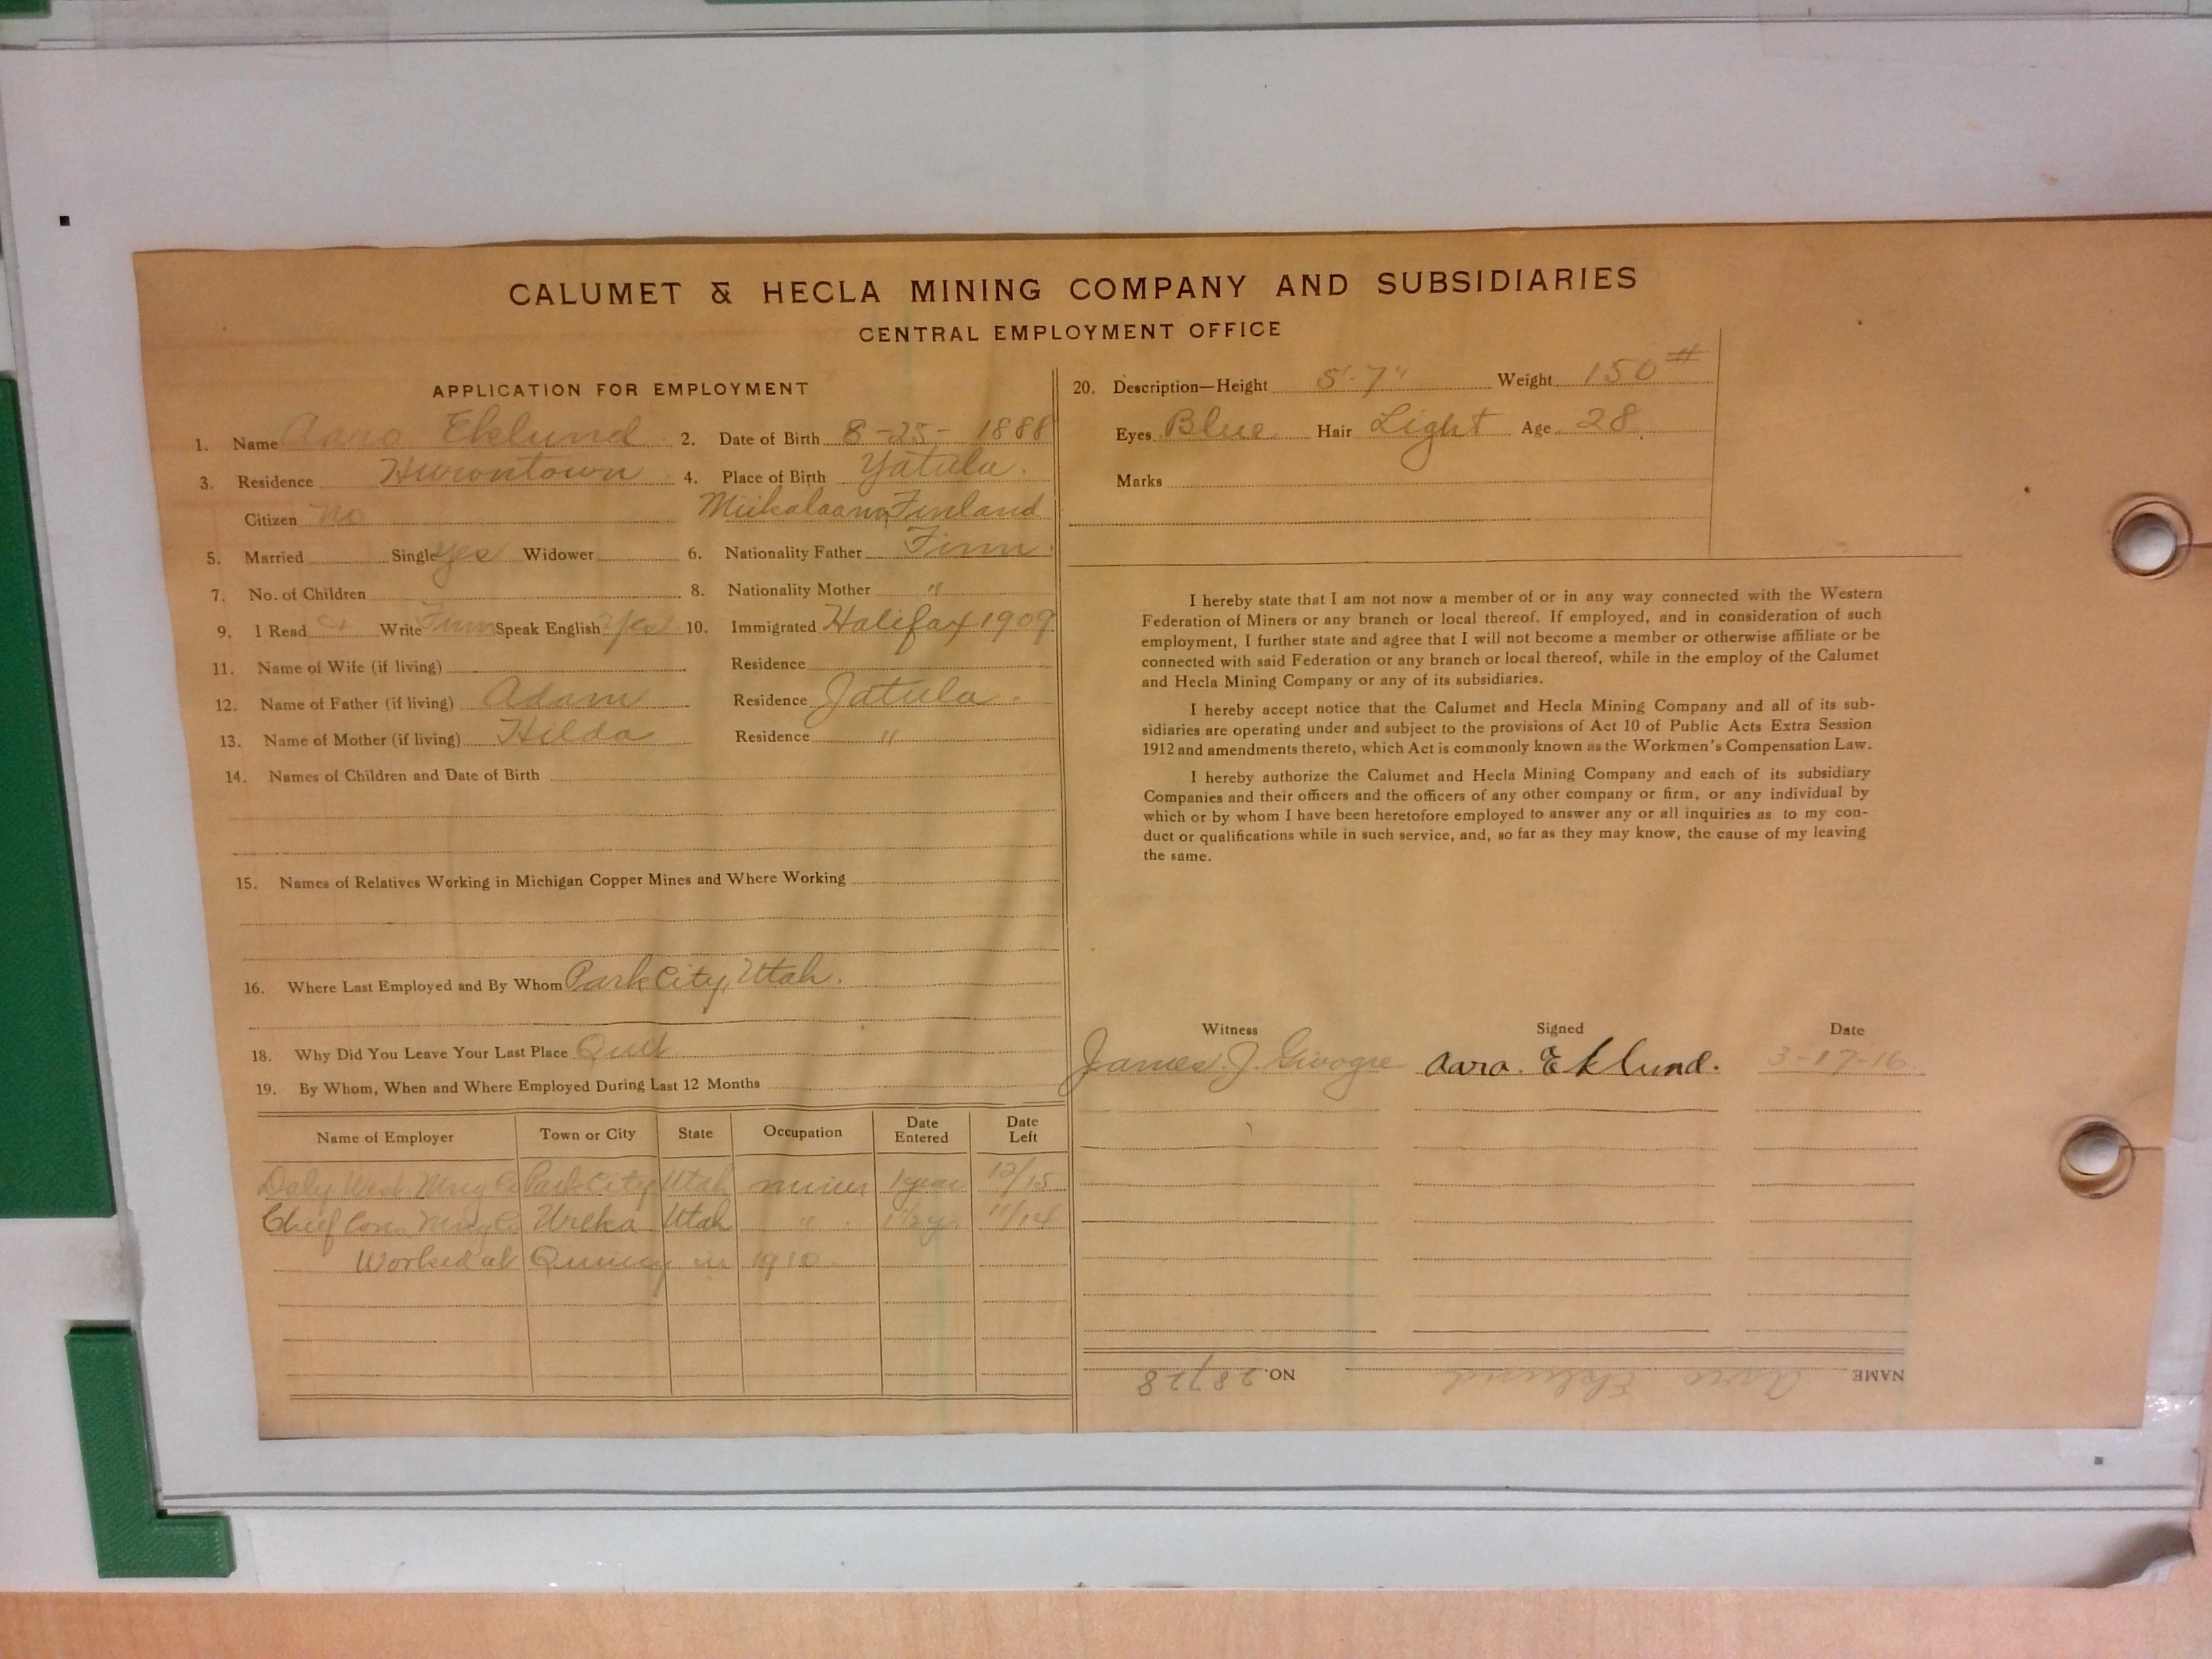 CALUMET & HECLA MINING COMPANY AND SUBSIDIARIES
CENTRAL EMPLOYMENT OFFICE
APPLICATION FOR EMPLOYMENT
1. Name Aaro Eklund 2. Date of Birth 8-25-1888
3. Residence Hurontown 4. Place of Birth Yatula.
Citizen No Finland
5. Married Single Yes Widower 6. Nationality Father Finn.
7. No. of Children 8. Nationality Mother "
9. I Read + Write Finn Speak English Yes 10. Immigrated Halifax 1909
11. Name of Wife (if living) Residence
12. Name of Father (if living) Adam Residence Jatula.
13. Name of Mother (if living) Hilda Residence "
14. Names of Children and Date of Birth
15. Names of Relatives Working in Michigan Copper Mines and Where Working
16. Where Last Employed and By Whom Park City, Utah.
18. Why Did You Leave Your Last Place Quit
19. By Whom, When and Where Employed During Last 12 Months
Name of Employer Town or City State Occupation Date Entered Date Left
Daly West Mng Co Park City Utah miner 1 year 12/15
Chief Cons. Mng Co Ureka Utah " 1 1/2 yr. 11/14
Worked at Quincy in 1910
20. Description—Height 5'-7" Weight 150#
Eyes Blue Hair Light Age 28
Marks
I hereby state that I am not now a member of or in any way connected with the Western
Federation of Miners or any branch or local thereof. If employed, and in consideration of such
employment, I further state and agree that I will not become a member or otherwise affiliate or be
connected with said Federation or any branch or local thereof, while in the employ of the Calumet
and Hecla Mining Company or any of its subsidiaries.
I hereby accept notice that the Calumet and Hecla Mining Company and all of its sub-
sidiaries are operating under and subject to the provisions of Act 10 of Public Acts Extra Session
1912 and amendments thereto, which Act is commonly known as the Workmen's Compensation Law.
I hereby authorize the Calumet and Hecla Mining Company and each of its subsidiary
Companies and their officers and the officers of any other company or firm, or any individual by
which or by whom I have been heretofore employed to answer any or all inquiries as to my con-
duct or qualifications while in such service, and, so far as they may know, the cause of my leaving
the same.
Witness Signed Date
James J. Aaro. Eklund. 3-17-16
NAME Aaro Eklund NO. 28728